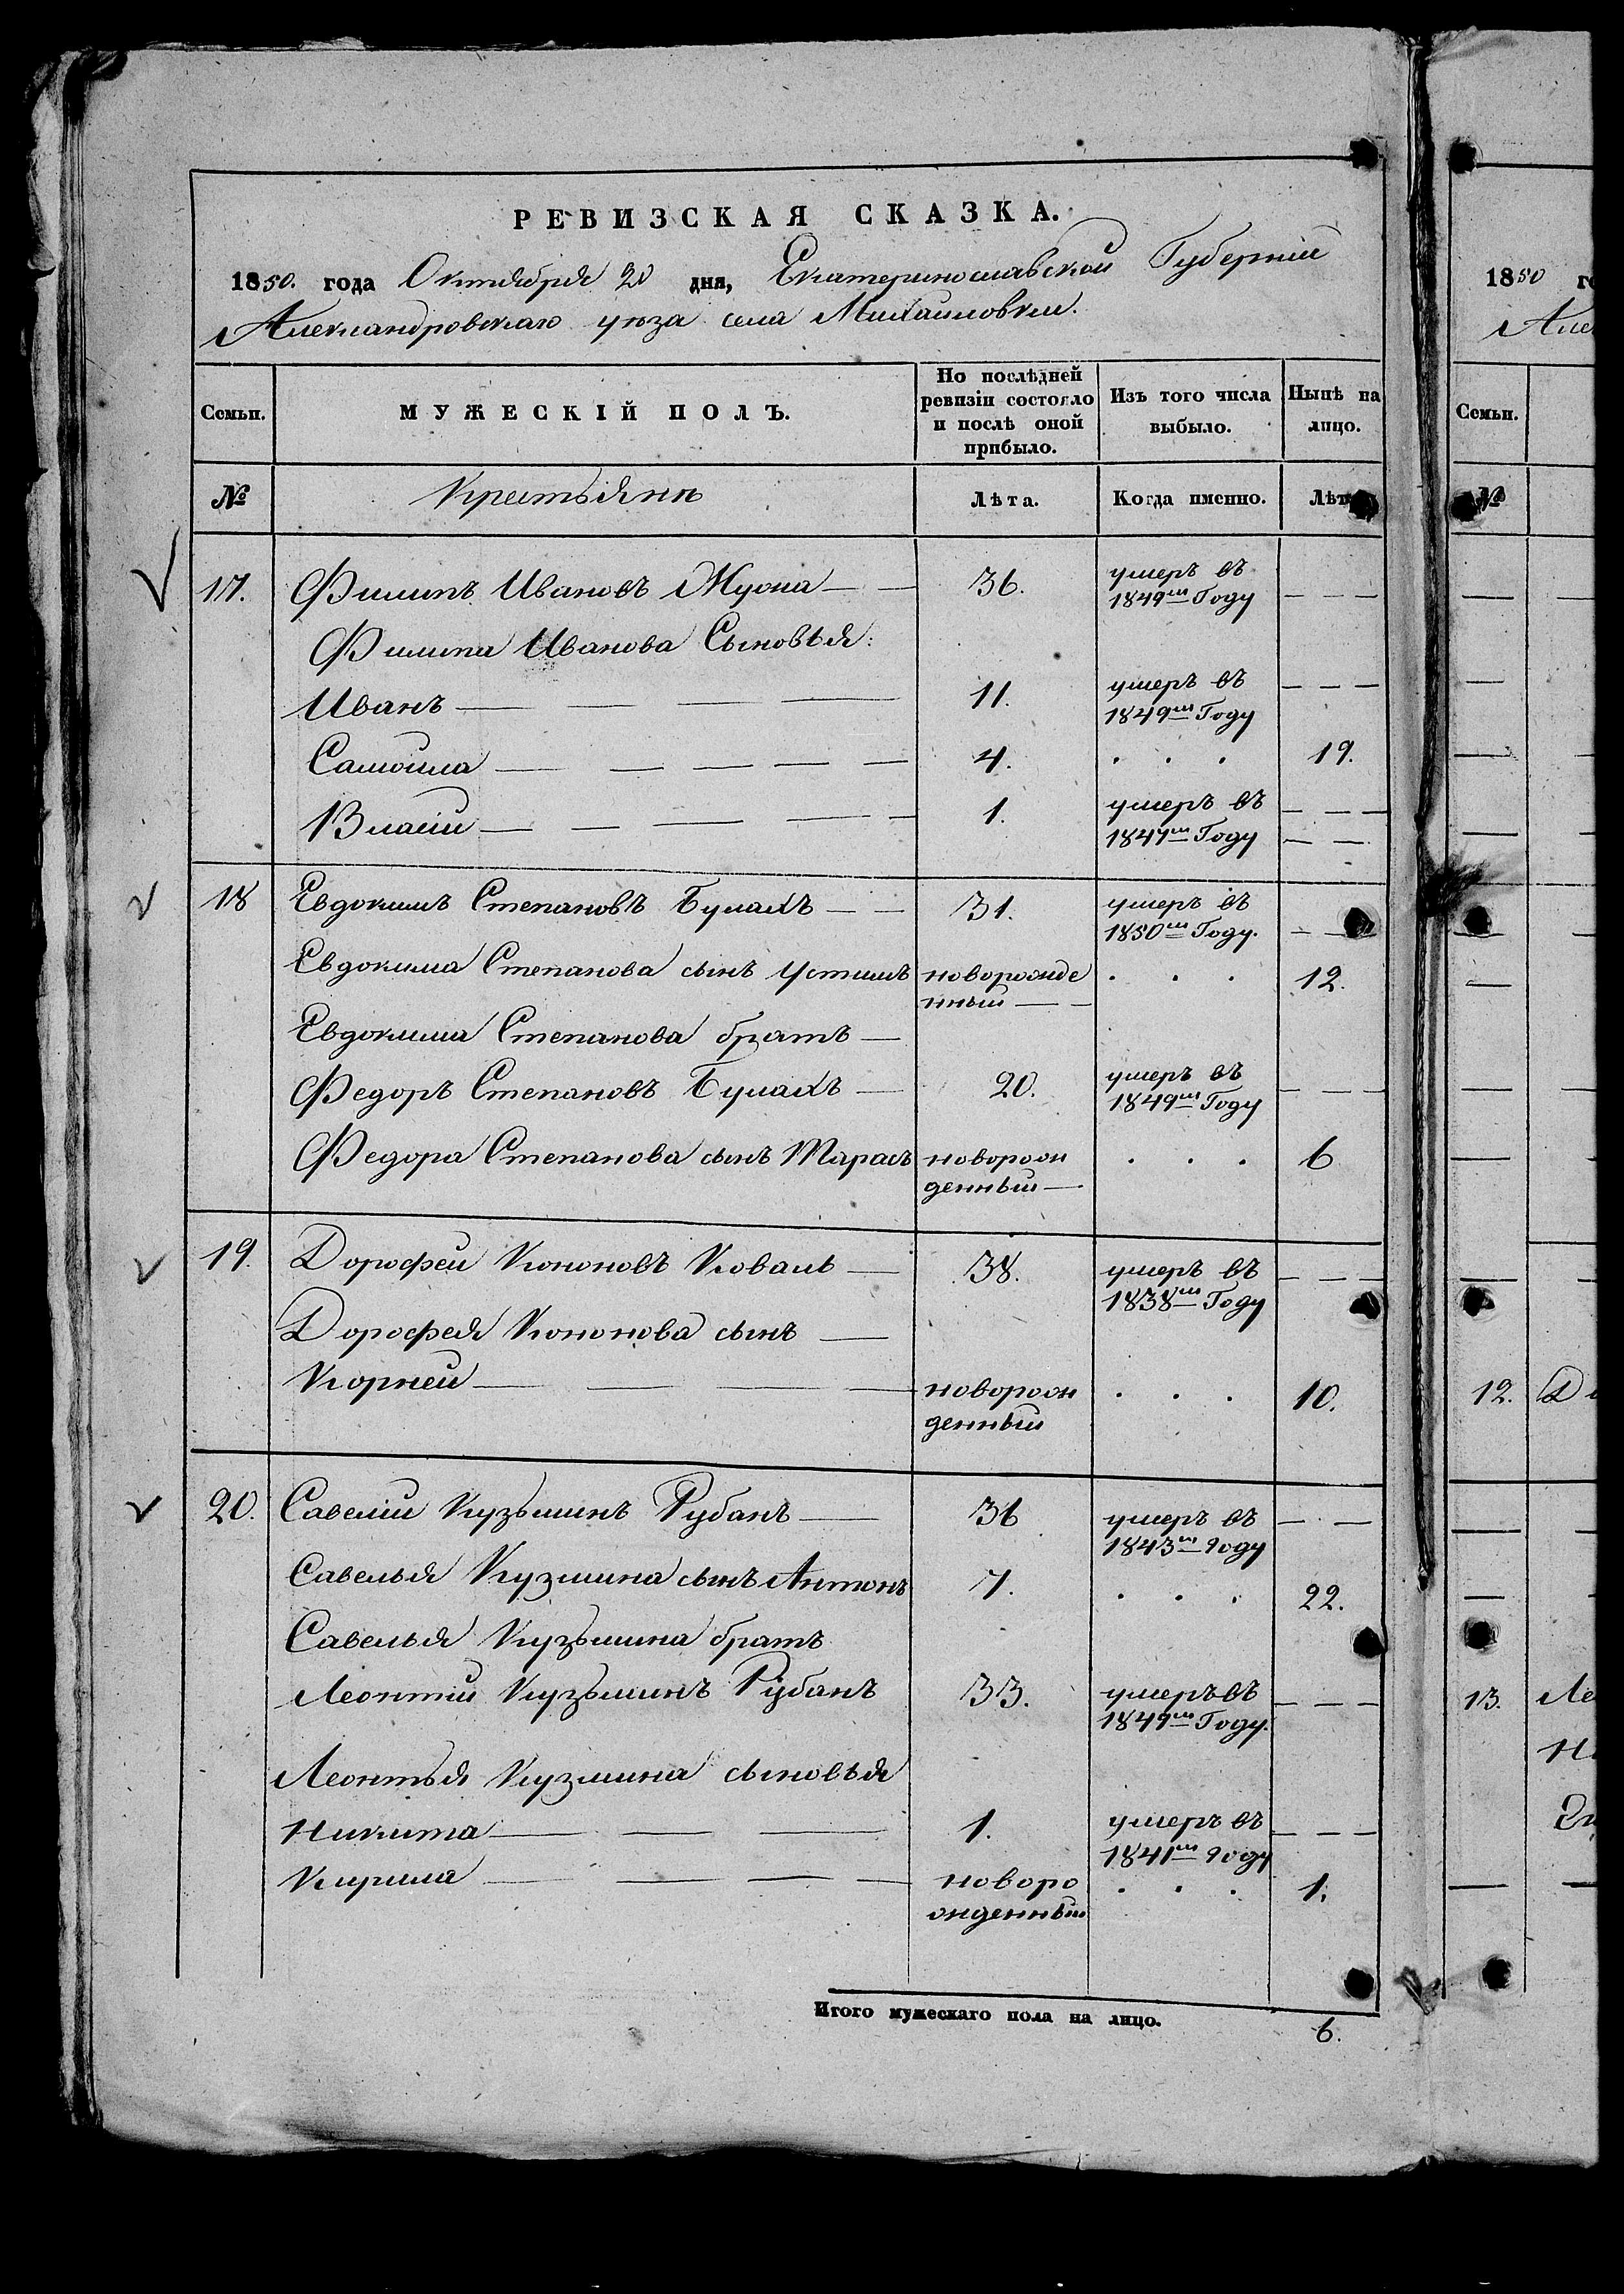 РЕВИЗСКАЯ СКАЗКА.
1850. года Октября 20 дня, Екатеринославской Губерніи
Александровскаго уѣза села Михаиловки.
Семьи.
МУЖЕСКІЙ ПОЛЪ.
По послѣдней
ревизіи состояло
и послѣ оной
прибыло.
Изъ того числа
выбыло.
Нынѣ на
лицо.
№ Крестьянѣ Лѣта. Когда именно. Лѣта
17. Филипъ Ивановъ Жуома 36. умеръ въ
1849м Году
Филипа Иванова Сыновья:
Иванъ 11. умеръ въ
1849м Году
Самоила 4. . . . 19.
Власіи 1. умеръ въ
1847м Году
18 Евдокимъ Степановъ Булахъ 31. умеръ въ
1850м Году.
Евдокима Степанова сынъ Устимъ новорожде . . . 12.
нный
Евдокима Степанова братъ
Федоръ Степановъ Булахъ 20. умеръ въ
1849м Году
Федора Степанова сынъ Тарасъ новорож . . . 6
денный
19. Дорофеи Кононовъ Коваль 38. умеръ въ
1838м Году
Дорофея Кононова сынъ
Корней новорож . . . 10.
денный
20. Савеліи Кузьминъ Рубанъ 36 умеръ въ
1843м году
Савелья Кузмина сынъ Антонъ 7. . . . 22.
Савелья Кузьмина братъ
Леонтіи Кузьминъ Рубанъ 33. умеръ въ
1849м Году.
Леонтья Кузмина сыновья
Никита 1. умеръ въ
1841м году
Кирила новоро . . . 1.
жденный
Итого мужескаго пола на лицо. 6.
1850
Семьи.
№
12.
13.